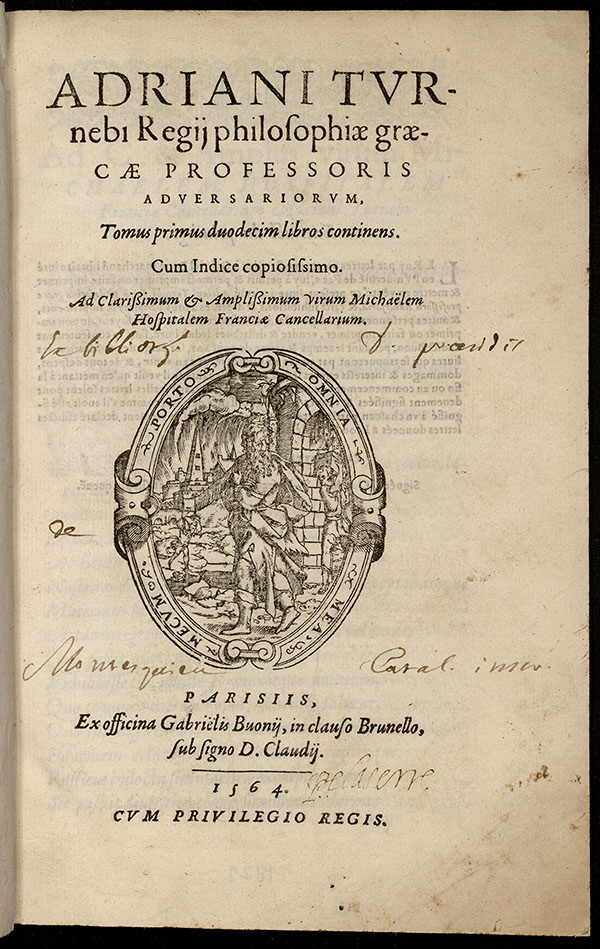 ADRIANI TVR-
nebi Regij philoſophiæ græ-
CÆ PROFESSORIS
ADVERSARIORVM,
Tomus primus duodecim libros continens.
Cum Indice copioſiſsimo.
Ad Clarißimum & Amplißimum virum Michaëlem
Hoſpitalem Franciæ Cancellarium.
Ex biblioth. D. præsidis
PORTO OMNIA
de
MECVM MEA
Montesquieu Catal. inscr.
PARISIIS,
Ex officina Gabriëlis Buonij, in clauſo Brunello,
ſub ſigno D. Claudij.
1564.
CVM PRIVILEGIO REGIS.